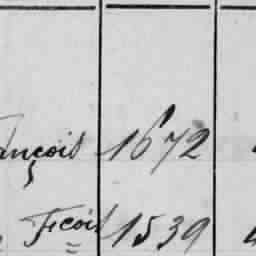 ançois 1672
Fçois 1539